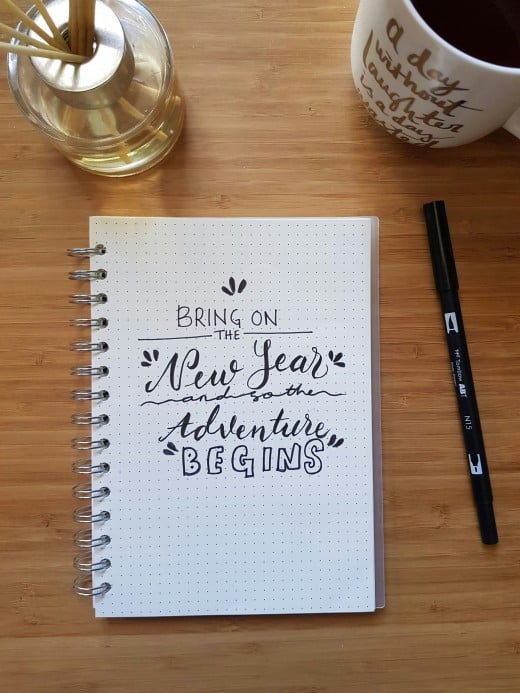 a day
without
laughter
is a day
wasted
BRING ON
THE
New Year
and so the
Adventure
BEGINS
Tombow ABT
N15